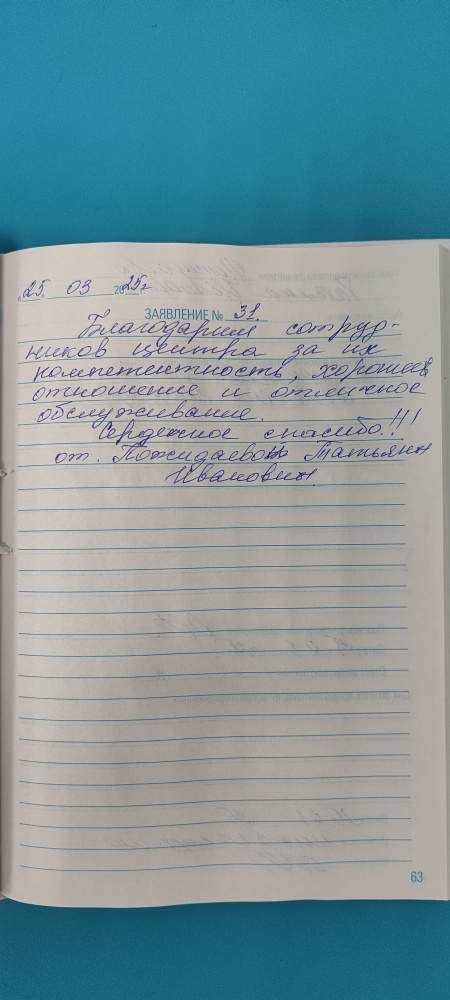 „25" 03 2025г
ЗАЯВЛЕНИЕ № 31.
Благодарим сотруд-
ников центра за их
компетентность, хорошее
отношение и отличное
обслуживание.
Сердечное спасибо!!!
от. Пожидаевой Татьяны
Ивановны.
63